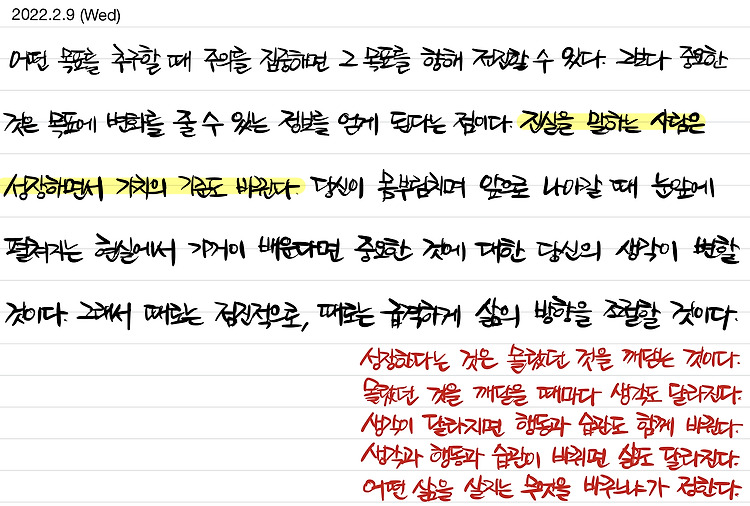 2022.2.9 (Wed)
어떤 목표를 추구할 때 주의를 집중하면 그 목표를 향해 전진할 수 있다. 그보다 중요한
것은 목표에 변화를 줄 수 있는 정보를 얻게 된다는 점이다. 진실을 말하는 사람은
성장하면서 가치의 기준도 바뀐다. 당신이 몸부림치며 앞으로 나아갈 때 눈앞에
펼쳐지는 현실에서 기꺼이 배운다면 중요한 것에 대한 당신의 생각이 변할
것이다. 그래서 때로는 점진적으로, 때로는 급격하게 삶의 방향을 조절할 것이다.
성장한다는 것은 몰랐던 것을 깨닫는 것이다.
몰랐던 것을 깨달을 때마다 생각도 달라진다.
생각이 달라지면 행동과 습관도 함께 바뀐다.
생각과 행동과 습관이 바뀌면 삶도 달라진다.
어떤 삶을 살지는 무엇을 바꾸느냐가 정한다.